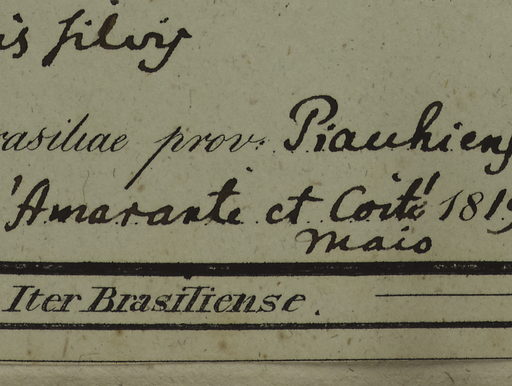 is silvis
rasiliae prov. Piauhiens
Amarante et Coité 1819
Maio
Iter Brasiliense.